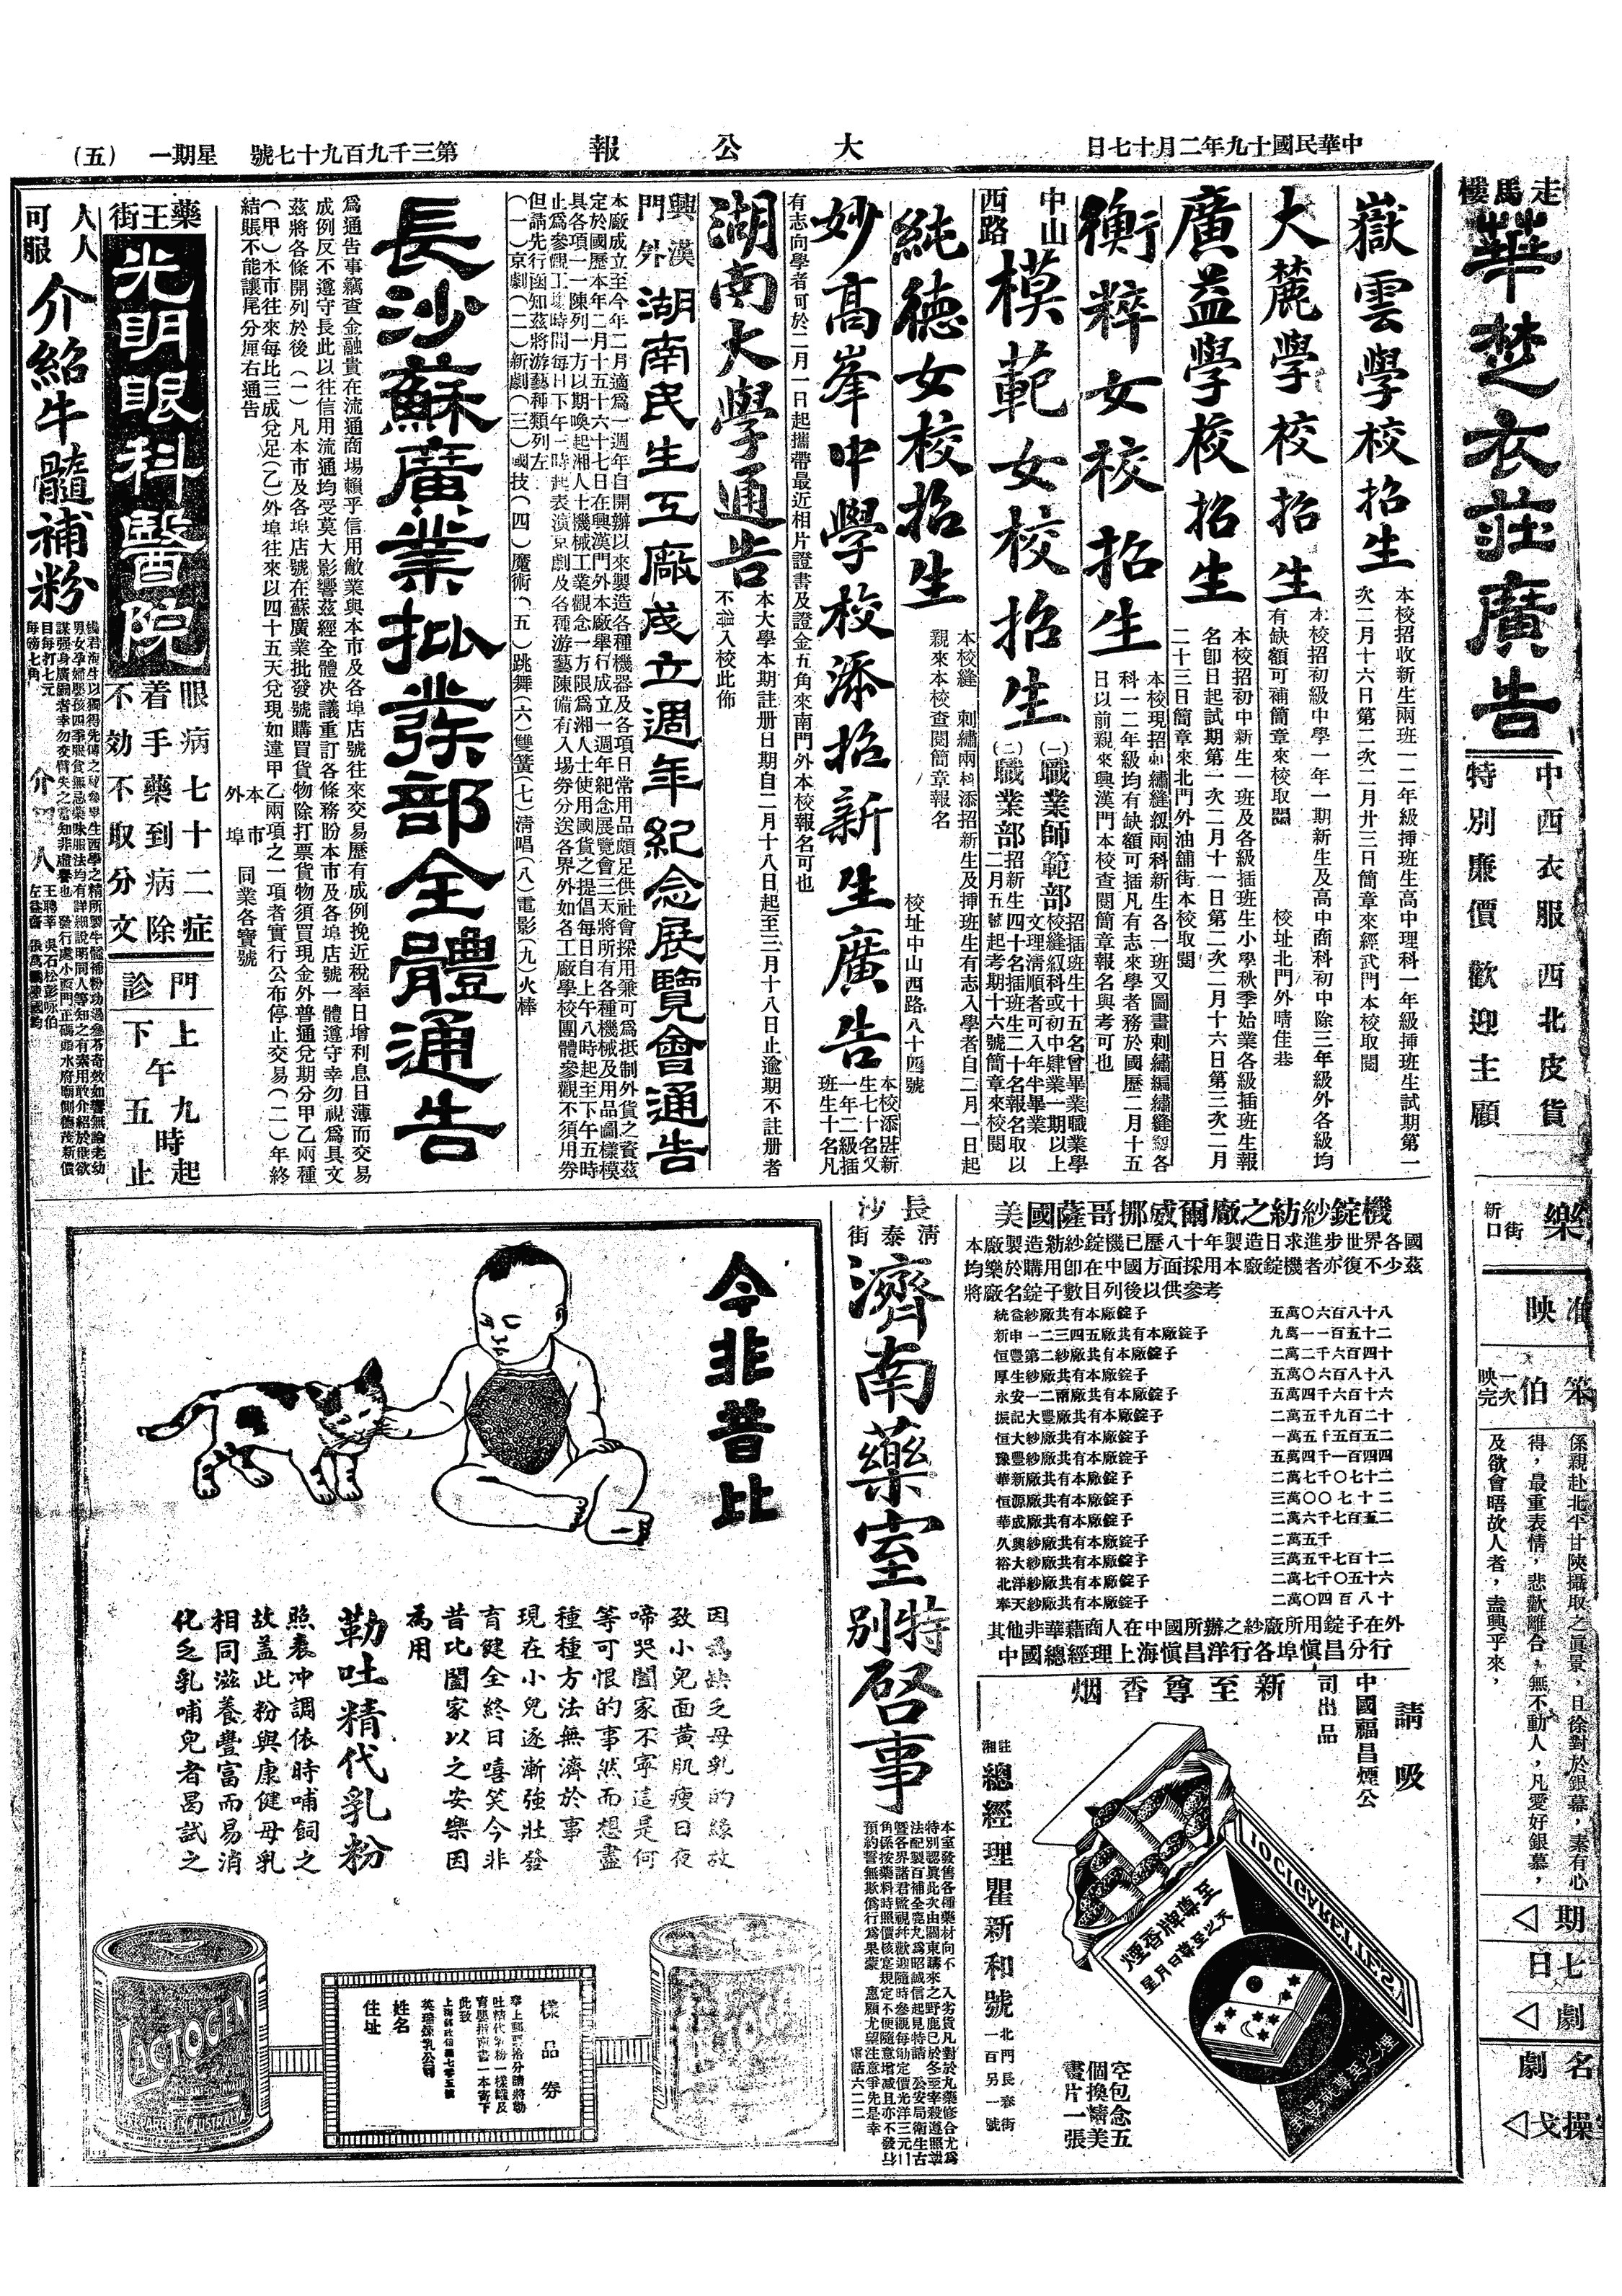 中華民國十九年二月十七日
大公報
第三千九百九十七號
星期一
(五)
走馬樓
華楚衣莊廣告
中西衣服西北皮貨
特別廉價歡迎主顧
嶽雲學校招生
本校招收新生兩班一二年級揷班生高中理科一年級揷班生試期第一
次二月十六日第二次二月廿三日簡章來經武門本校取閱
大麓學校招生
本校招初級中學一年一期新生及高中商科初中除三年級外各級均
有缺額可補簡章來校取閱
校址北門外晴佳巷
廣益學校招生
本校招初中新生一班及各級插班生小學秋季始業各級插班生報
名卽日起試期第一次二月十一日第二次二月十六日第三次二月
二十三日簡章來北門外油舖街本校取閱
衡粹女校招生
本校現招刺繡縫紉兩科新生各一班又圖畫刺繡編繡縫紉各
科一二年級均有缺額可插凡有志來學者務於國歷二月十五
日以前親來興漢門本校查閱簡章報名與考可也
中山西路
模範女校招生
(一)職業師範部
招插班生十五名曾畢業職業學
校縫紉科或初中肄業一期以上
文理淸順者可入年半畢業
(二)職業部
招新生四十名插班生二十名報名取以
二月五號起考期十六號簡章來校閱
純德女校招生
本校縫紉刺繡兩科添招新生及揷班生有志入學者自二月一日起
親來本校查閱簡章報名
校址中山西路八十四號
妙高峯中學校添招新生廣告
本校添招新
生七十名又
一年二級插
班生十名凡
有志向學者可於二月一日起攜帶最近相片證書及證金五角來南門外本校報名可也
湖南大學通告
本大學本期註册日期自二月十八日起至三月十八日止逾期不註册者
不准入校此佈
興漢門外
湖南民生工廠成立週年紀念展覽會通告
本廠成立至今年二月適爲一週年自開辦以來製造各種機器及各項日常用品頗足供社會採用兼可爲抵制外貨之資茲
定於國歷本年二月十五十六十七日在興漢門外本廠舉行成立一週年紀念展覽會三天將所有各種機械及用品圖樣模
具各項一一陳列一方以期喚起湘人士機械工業觀念一方限爲湘人士使用國貨之提倡每日自上午八時起至下午五時
止爲參觀工場時間每日下午三時起表演京劇及各種游藝陳備有入場券分送各界外如各工廠學校團體參觀不須用券
但請先行函知茲將游藝種類列左
(一)京劇(二)新劇(三)國技(四)魔術(五)跳舞(六)雙簧(七)淸唱(八)電影(九)火棒
長沙蘇廣業批發部全體通告
爲通告事竊查金融貴在流通商場賴乎信用敝業與本市及各埠店號往來交易歷有成例挽近稅率日增利息日薄而交易
成例反不遵守長此以往信用流通均受莫大影響茲經全體决議重訂各條務盼本市及各埠店號一體遵守幸勿視爲具文
茲將各條開列於後(一)凡本市及各埠店號在蘇廣業批發號購買貨物除打票貨物須買現金外普通兌期分甲乙兩種
(甲)本市往來每比三成兌足(乙)外埠往來以四十五天兌現如違甲乙兩項之一項者實行公布停止交易(二)年終
結賬不能讓尾分厘右通告
本市
外埠
同業各寶號
藥王街
光明眼科醫院
眼病七十二症
着手藥到病除
不効不取分文
門診
上午九時起
下午五時止
人人可服
介紹牛髓補粉
每磅七角
目每打七元
介紹人
王聘莘
吳石松
彭咏伯
左益齋
美國薩哥挪威爾廠之紡紗錠機
本廠製造紡紗錠機已歷八十年製造日求進步世界各國
均樂於購用卽在中國方面採用本廠錠機者亦復不少茲
將廠名錠子數目列後以供參考
統益紗廠共有本廠錠子 五萬〇六百八十八
新申一二三四五廠共有本廠錠子 九萬一一百五十二
恒豐第二紗廠共有本廠錠子 二萬二千六百四十
厚生紗廠共有本廠錠子 五萬〇六百八十八
永安一二兩廠共有本廠錠子 五萬四千六百十六
振記大豐廠共有本廠錠子 二萬五千九百二十
恒大紗廠共有本廠錠子 一萬五千五百五二
豫豐紗廠共有本廠錠子 五萬四千一百四四
華新廠共有本廠錠子 二萬七千〇七十二
恒源廠共有本廠錠子 三萬〇〇七十二
華成廠共有本廠錠子 二萬六千七百五二
久興紗廠共有本廠錠子 二萬五千
裕大紗廠共有本廠錠子 三萬五千七百十二
北洋紗廠共有本廠錠子 二萬七千〇五十六
奉天紗廠共有本廠錠子 二萬〇四百八十
其他非華藉商人在中國所辦之紗廠所用錠子在外
中國總經理上海愼昌洋行各埠愼昌分行
請吸
中國福昌煙公司出品
新至尊香烟
至尊牌香煙
天以至尊日月星
10 CIGARETTES
空包念五
個換精美
畫片一張
駐湘
總經理瞿新和號
北門長春街
一百另一號
長沙
淸泰街
濟南藥室特別啓事
本室發售各種藥材向不入劣貨凡對於丸藥修合尤爲
特別認眞此次由關東購來之野鹿已於冬至宰殺遵照
法配製百補全鹿丸爲昭誠信起見特請公安局衛生
曁各界諸君監視幷歡迎隨時參觀每
角係按藥料時照價核定規定不便隨意增减且亦不發行
預約誓無欺僞行爲果蒙惠願尤望注意爭先是幸
電話六二二
今非昔比
因爲缺乏母乳的緣故
致小兒面黃肌瘦日夜
啼哭闔家不寧這是何
等可恨的事然而想盡
種種方法無濟於事
現在小兒逐漸強壯發
育健全終日嘻笑今非
昔比闔家以之安樂因
爲用
勒吐精代乳粉
照表冲調依時哺飼之
故蓋此粉與康健母乳
相同滋養豐富而易消
化乏乳哺兒者曷試之
LACTOGEN
樣品券
奉上郵票十分請將勒
吐精代乳粉一樣罐及
育嬰指南書一本寄下
此致
英瑞煉乳公司
姓名
住址
樂
新街口
准映
笨伯
一次映完
係親赴北平甘陝攝取之眞景，且徐對於銀幕，素有心
得，最重表情，悲歡離合，無不動人，凡愛好銀慕，
及欲會晤故人者，盍興乎來，
期
七日
劇
名劇
操戈